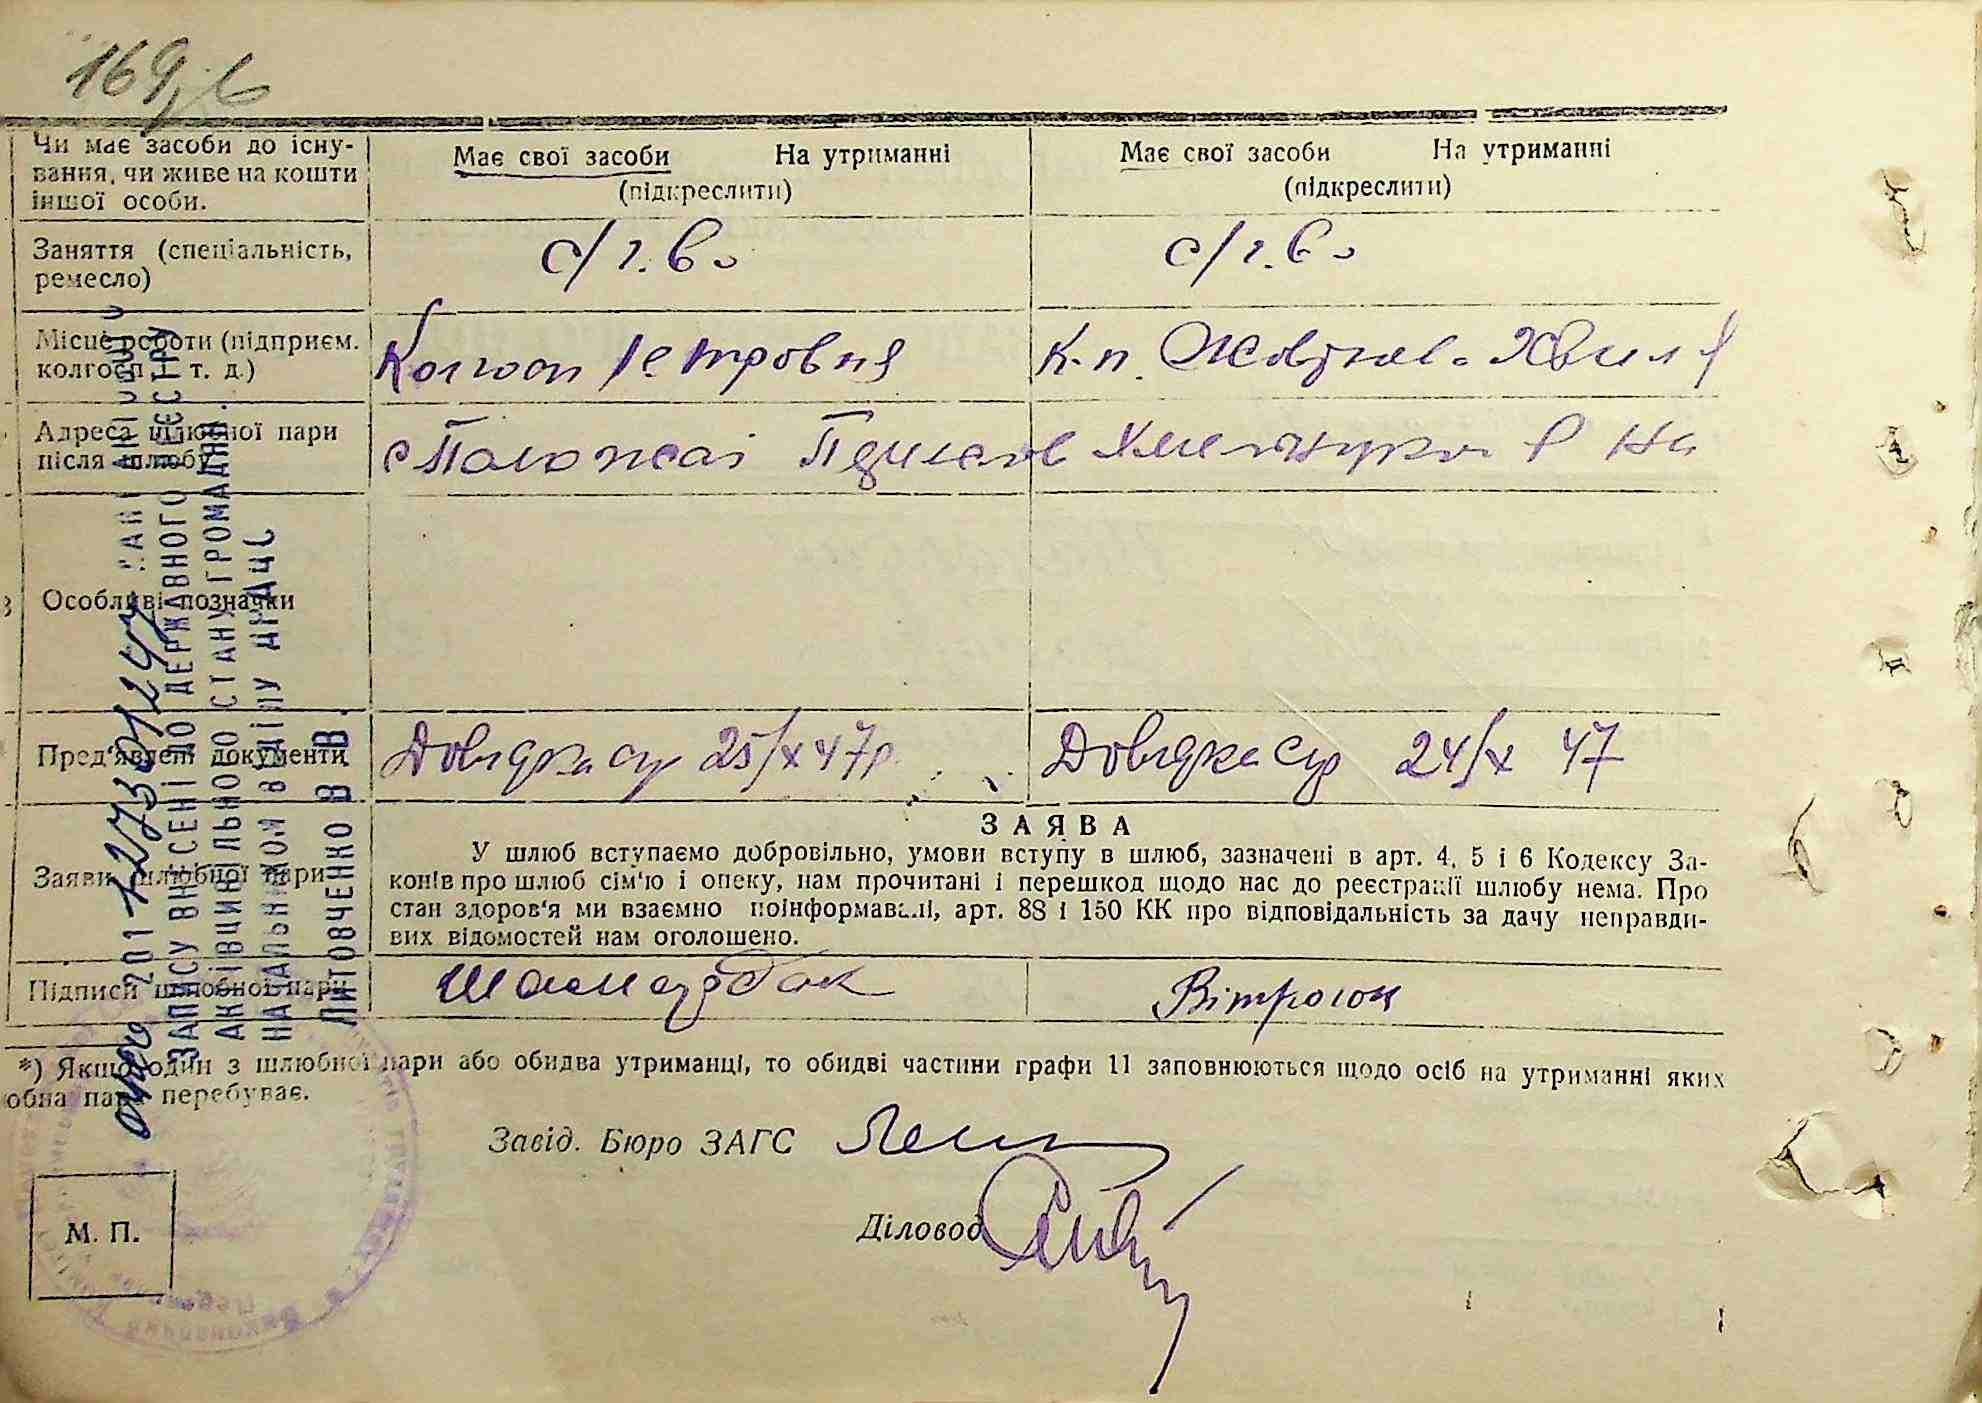 169
Чи має засоби до існу-
вання, чи живе на кошти
іншої особи.
Має свої засоби На утриманні
(підкреслити)
Має свої засоби На утриманні
(підкреслити)
Заняття (спеціальність,
ремесло)
с/г.
с/г.
Місце роботи (підприєм.
колгосп і т. д.)
Колгосп Петровця
к-п. Жовтнева Хвиля
Адреса шлюбної пари
після шлюбу
с
р на
Особливі позначки
Пред'явлені документи
Довідка с/р 25/X 47р.
Довідка с/р 24/X 47
Заяви шлюбної пари
ЗАЯВА
У шлюб вступаємо добровільно, умови вступу в шлюб, зазначені в арт. 4, 5 і 6 Кодексу За-
конів про шлюб сім'ю і опеку, нам прочитані і перешкод щодо нас до реєстрації шлюбу нема. Про
стан здоров'я ми взаємно поінформавалі, арт. 88 і 150 КК про відповідальність за дачу неправди-
вих відомостей нам оголошено.
Підписи шлюбної пари
Вітрогон
*) Якщо один з шлюбної пари або обидва утриманці, то обидві частини графи 11 заповнюються щодо осіб на утриманні яких
обна пара перебуває.
Завід. Бюро ЗАГС
Діловод
М. П.
ЗАПИСУ ВНЕСЕНІ ДО ДЕРЖАВНОГО РЕЄСТРУ
АКТІВ ЦИВІЛЬНОГО СТАНУ ГРОМАДЯН.
НАЧАЛЬНИКОМ ВІДДІЛУ ДРАЦС
ЛИТОВЧЕНКО В.В.